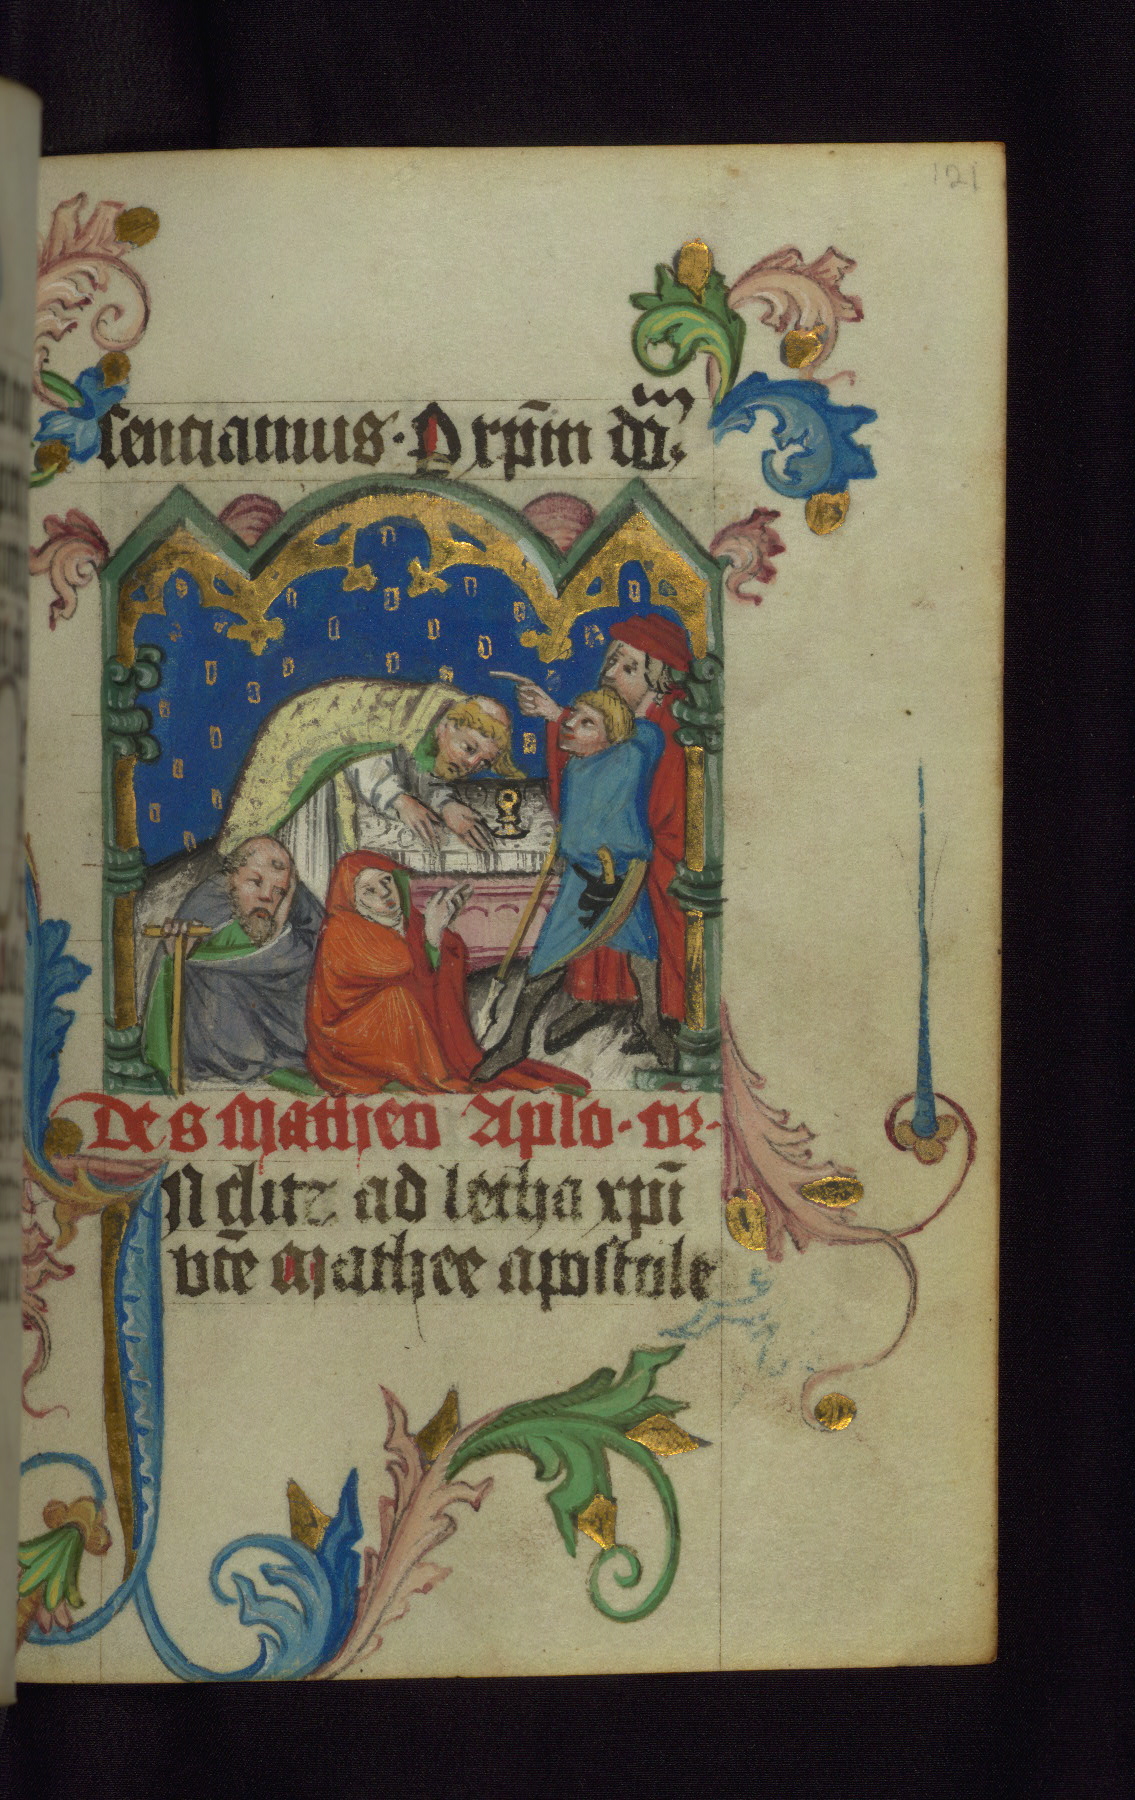 121
sentiamus. P xp̄m dn̄m
De s Matheo Aplo. or.
Inclite ad letha xpī
vic̄e Mathee apostole